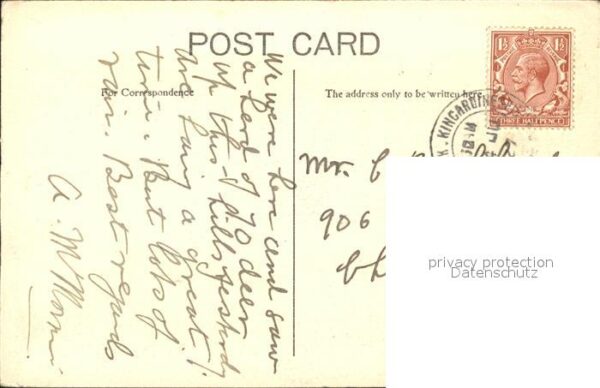 POST CARD
For Correspondence
The address only to be written here
1½ 1½
THREE HALFPENCE
KINCARDINE
We were here and saw
a herd of 70 deer
up this hills yesterday
are having a great
time. But lots of
rain. Best regards
Mr. C
906
privacy protection
Datenschutz